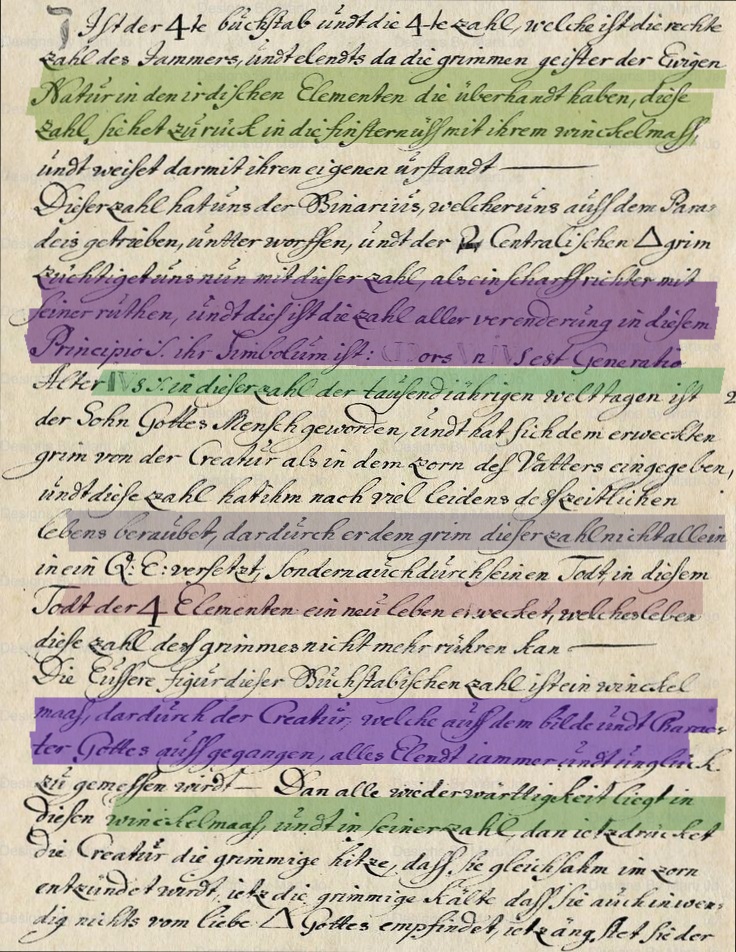 Ist der 4te büchstab undt die 4-te zahl, welche ist die rechte
zahl des Jammers, undt elendts da die grimmen geister der Ewigen
Natur in den irdischen Elementen die überhandt haben, diese
zahl siehet zurück in die finsternüss mit ihrem winckelmass,
undt weiset darmit ihren eigenen urstandt —
Dieser zahl hat uns der Binarius, welcher uns auss dem Para-
deis getrieben, untter worffen, undt der 2 Centralischen △ grim
züchtiget uns nun mit dieser zahl, als ein scharffrichter mit
seiner ruthen, undt dies ist die zahl aller verenderung in diesem
Principio S. ihr Simbolum ist: ors n est Generatio
Alter in dieser zahl der tausendjährigen welt tagen ist 2
der Sohn Gottes Mensch geworden, undt hat sich dem erweckten
grim von der Creatur als in dem zorn dess Vatters eingegeben,
undt diese zahl hat ihm nach viel leidens dess zeitlichen
lebens beraubet, dardurch er dem grim dieser zahl nicht allein
in ein Q: E: versetzt, sondern auch durch seinen Todt, in diesem
Todt der 4 Elementen ein neu leben erwecket, welches leben
diese zahl dess grimmes nicht mehr rühren kan —
Die Eussere figur dieser Buchstabischen zahl ist ein winckel
maas, dardurch der Creatur, welche auss dem bilde undt Charac-
ter Gottes auss gegangen, alles Elendt jammer undt unglück
zu gemessen wirdt — Dan alle wiederwärttigkeit liegt in
diesen winckelmaas, undt in seiner zahl, dan ietz drücket
die Creatur die grimmige hitze, dass sie gleichsahm im zorn
entzündet wirdt, ietz die grimmige Kälte dass sie auch inwen-
dig nichts vom liebe △ Gottes empfindet, ietz ängstet sie der